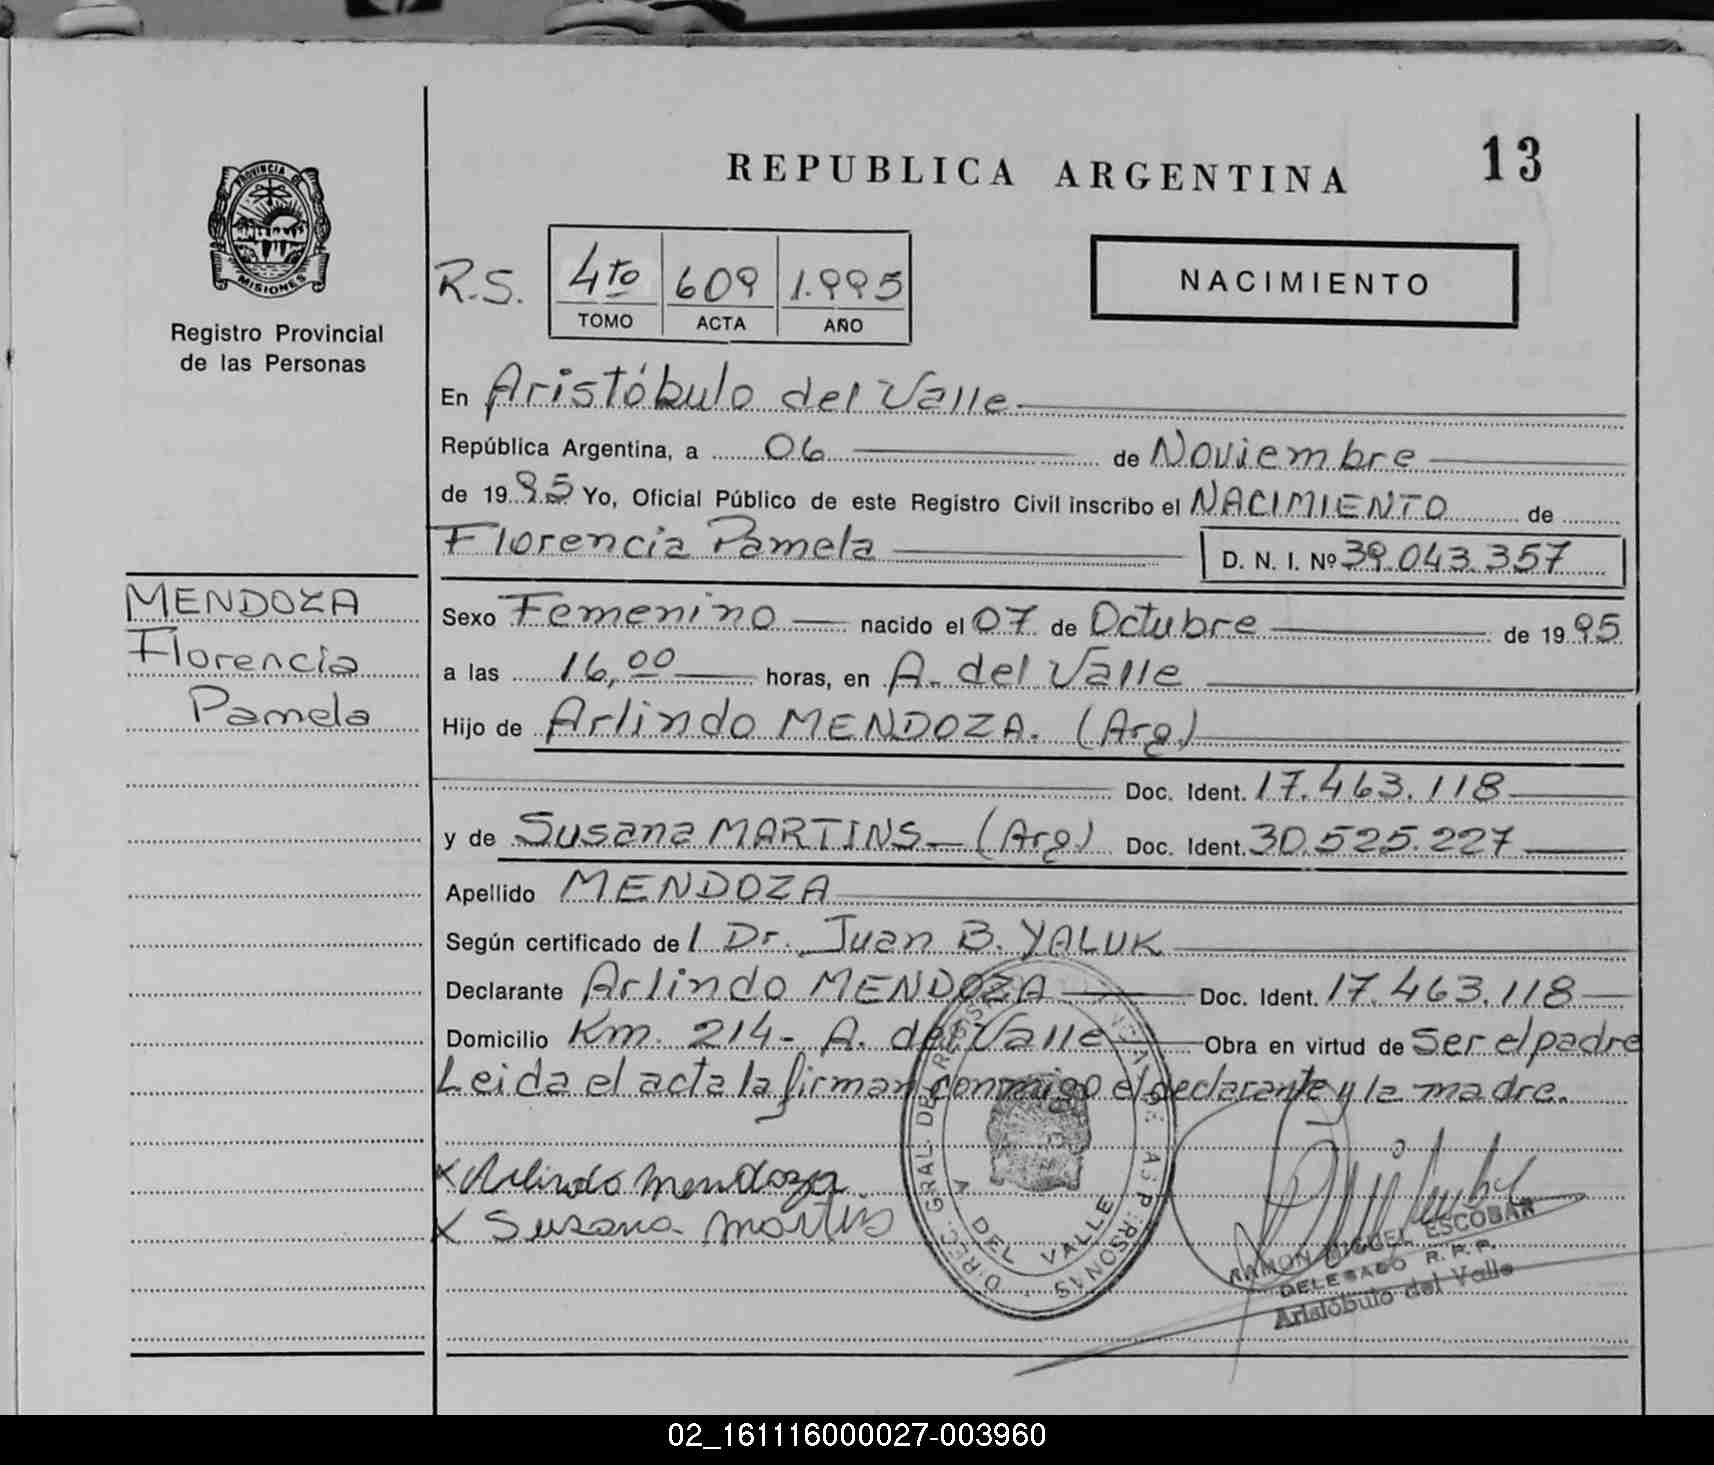 REPUBLICA ARGENTINA
13
PROVINCIA DE
MISIONES
Registro Provincial
de las Personas
R.S.
4to 609 1.995
TOMO ACTA AÑO
NACIMIENTO
En Aristóbulo del Valle
República Argentina, a 06 de Noviembre
de 1995 Yo, Oficial Público de este Registro Civil inscribo el NACIMIENTO de
Florencia Pamela D. N. I. Nº 39.043.357
MENDOZA
Florencia
Pamela
Sexo Femenino nacido el 07 de Octubre de 1995
a las 16,00 horas, en A. del Valle
Hijo de Arlindo MENDOZA. (Arg)
Doc. Ident. 17.463.118
y de Susana MARTINS (Arg) Doc. Ident. 30.525.227
Apellido MENDOZA
Según certificado de l Dr. Juan B. YALUK
Declarante Arlindo MENDOZA Doc. Ident. 17.463.118
Domicilio Km. 214- A. del Valle Obra en virtud de Ser el padre
Leida el acta la firman conmigo el declarante y la madre.
x Arlindo Mendoza
x Susana Martins
DIREC. GRAL. DE REGIST PERSONAS
A DEL VALLE
RAMON MIGUEL ESCOBAR
DELEGADO R.P.P.
Aristóbulo del Valle
02_161116000027-003960